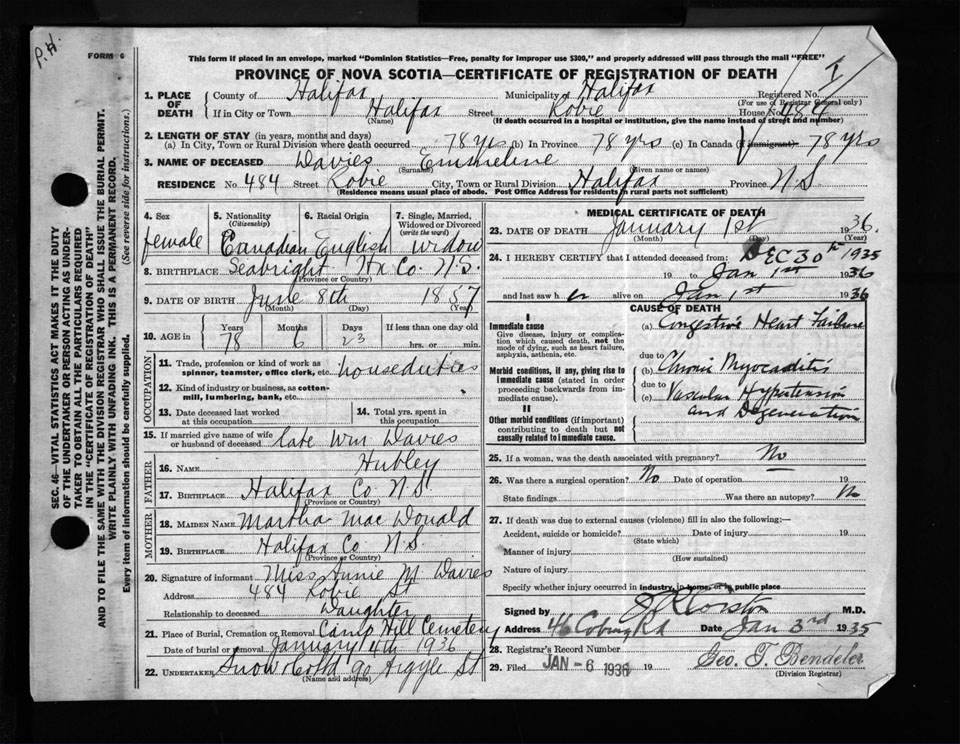 P.H.
FORM 6
This form if placed in an envelope, marked "Dominion Statistics—Free, penalty for improper use $300," and properly addressed will pass through the mail "FREE"
PROVINCE OF NOVA SCOTIA—CERTIFICATE OF REGISTRATION OF DEATH
1. PLACE OF DEATH
County of Halifax Municipality of Halifax Registered No.
(For use of Registrar General only)
If in City or Town Halifax Street Robie House No. 484
(Name) (If death occurred in a hospital or institution, give the name instead of street and number)
2. LENGTH OF STAY (in years, months and days)
(a) In City, Town or Rural Division where death occurred 78 yrs (b) In Province 78 yrs (c) In Canada (if immigrant) 78 yrs
3. NAME OF DECEASED Davies Emmeline
(Surname) (Given name or names)
RESIDENCE No. 484 Street Robie City, Town or Rural Division Halifax Province N S
(Residence means usual place of abode. Post Office Address for residents in rural parts not sufficient)
4. Sex female
5. Nationality (Citizenship) Canadian
6. Racial Origin English
7. Single, Married, Widowed or Divorced (write the word) widow
8. BIRTHPLACE Seabright Hx Co. N.S.
(Province or Country)
9. DATE OF BIRTH June 8th 1857
(Month) (Day) (Year)
10. AGE in Years 78 Months 6 Days 23 If less than one day old
hrs. or min.
OCCUPATION
11. Trade, profession or kind of work as spinner, teamster, office clerk, etc. houseduties
12. Kind of industry or business, as cotton-mill, lumbering, bank, etc.
13. Date deceased last worked at this occupation
14. Total yrs. spent in this occupation
15. If married give name of wife or husband of deceased late Wm Davies
FATHER
16. NAME Hubley
17. BIRTHPLACE Halifax Co N.S
(Province or Country)
MOTHER
18. MAIDEN NAME Martha Mac Donald
19. BIRTHPLACE Halifax Co N.S.
(Province or Country)
20. Signature of informant Miss Annie M Davies
Address 484 Robie St
Relationship to deceased Daughter
21. Place of Burial, Cremation or Removal Camp Hill Cemetery
Date of burial or removal January 4th 1936
22. UNDERTAKER Snow & Co Ltd 90 Argyle St
(Name and address)
MEDICAL CERTIFICATE OF DEATH
23. DATE OF DEATH January 1st 1936.
(Month) (Day) (Year)
24. I HEREBY CERTIFY that I attended deceased from: DEC 30th 1935
19 to Jan 1st 1936
and last saw h er alive on Jan 1st 1936
CAUSE OF DEATH
I
Immediate cause
Give disease, injury or complication which caused death, not the mode of dying, such as heart failure, asphyxia, asthenia, etc.
(a) Congestive Heart Failure
due to
Morbid conditions, if any, giving rise to immediate cause (stated in order proceeding backwards from immediate cause).
(b) Chronic Myocarditis
due to
(c) Vascular Hypertension
and Degeneration
II
Other morbid conditions (if important) contributing to death but not causally related to immediate cause.
25. If a woman, was the death associated with pregnancy? No
26. Was there a surgical operation? No Date of operation 19
State findings Was there an autopsy? No
27. If death was due to external causes (violence) fill in also the following:—
Accident, suicide or homicide? Date of injury 19
(State which)
Manner of injury
(How sustained)
Nature of injury
Specify whether injury occurred in industry, in home, or in public place
Signed by M.D.
Address 46 Coburg Rd Date Jan 3rd 1935
28. Registrar's Record Number
29. Filed JAN - 6 1936 19 Geo. T. Bendeler
(Division Registrar)
SEC. 46—VITAL STATISTICS ACT MAKES IT THE DUTY
OF THE UNDERTAKER OR PERSON ACTING AS UNDER-
TAKER TO OBTAIN ALL THE PARTICULARS REQUIRED
IN THE "CERTIFICATE OF REGISTRATION OF DEATH"
AND TO FILE THE SAME WITH THE DIVISION REGISTRAR WHO SHALL ISSUE THE BURIAL PERMIT.
WRITE PLAINLY WITH UNFADING INK. THIS IS A PERMANENT RECORD.
Every item of information should be carefully supplied. (See reverse side for instructions.)